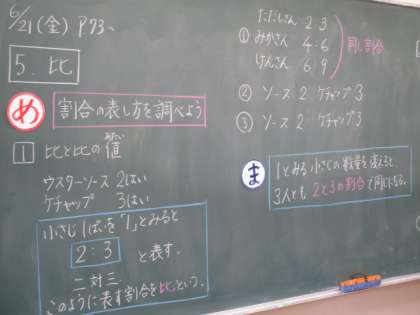 6/21(金) P73~
5. 比
め 割合の表し方を調べよう
1 比と比の値
ウスターソース 2はい
ケチャップ 3はい
小さじ1ぱいを「1」とみると
2:3 と表す。
二 対 三
このように表す割合を比という。
① ただしさん 2:3
みかさん 4:6
けんさん 6:9
同じ割合
② ソース 2 ケチャップ 3
③ ソース 2 ケチャップ 3
ま 1とみる小さじの数量を変えると、
3人とも 2と3の割合で同じになる。